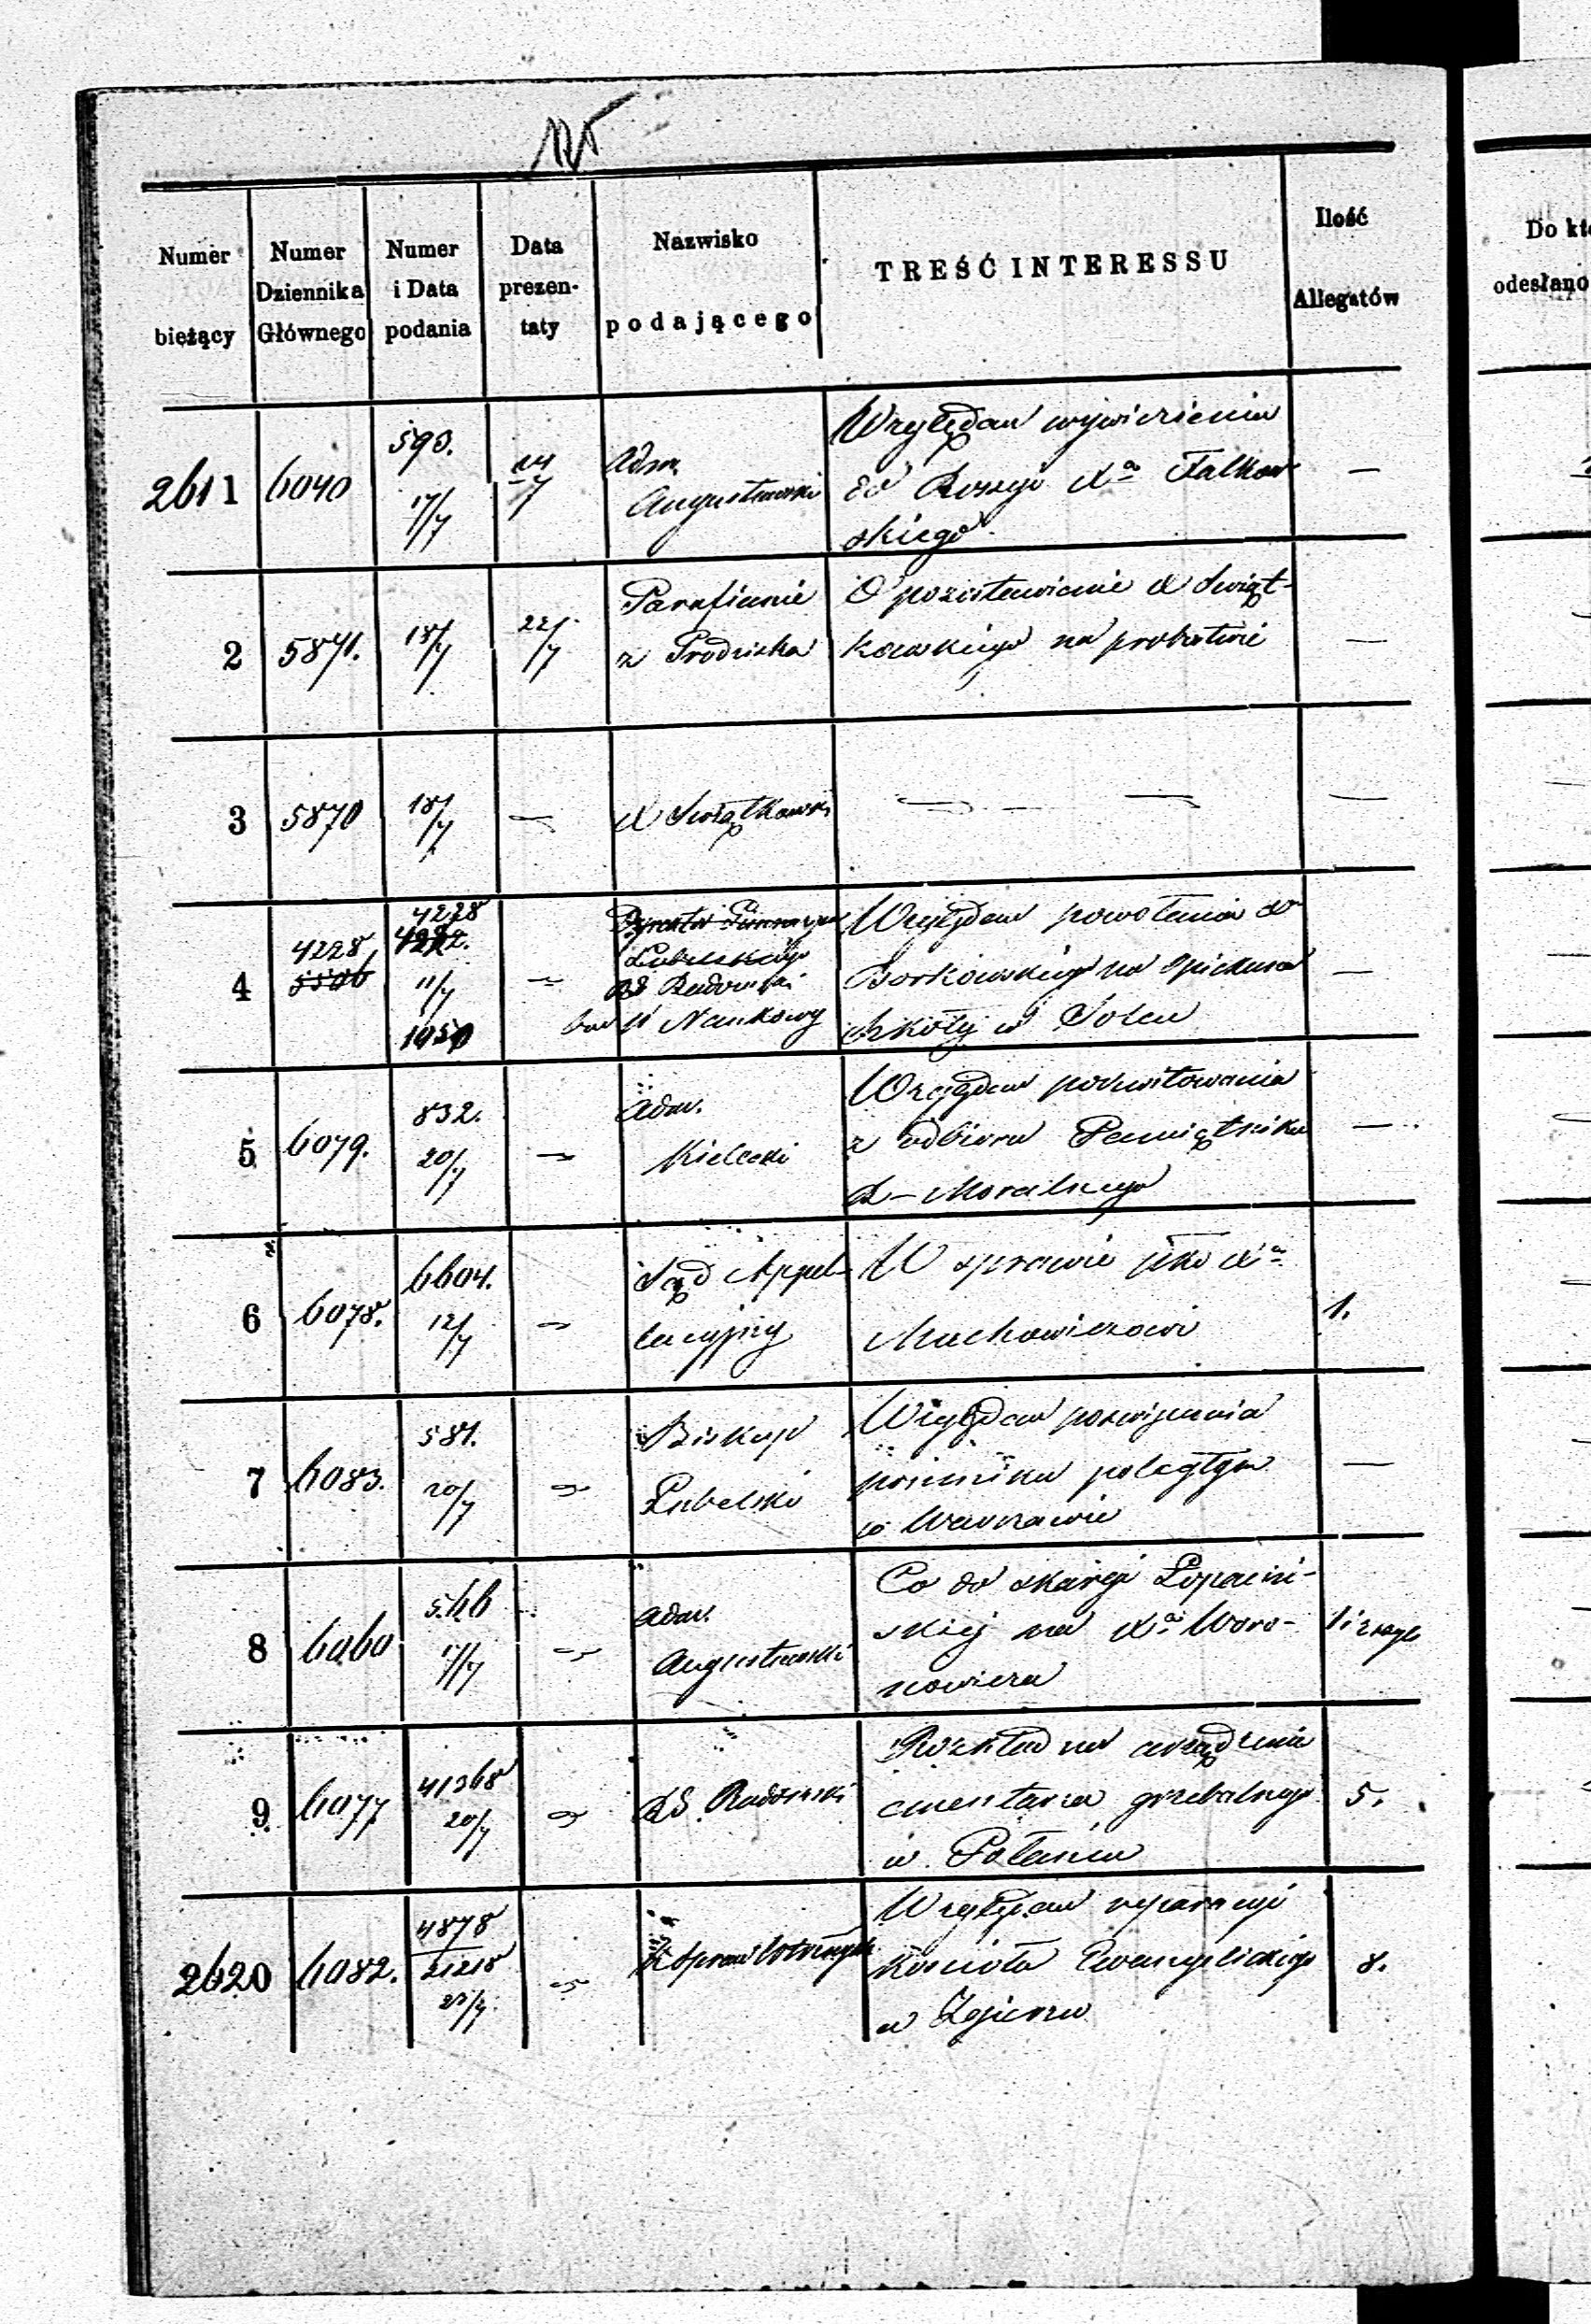 Numer bieżący
Numer Dziennika Głównego
Numer i Data podania
Data prezen-taty
Nazwisko podającego
TREŚĆ INTERESSU
Ilość Allegatów
Do któ
odesłano
2611 6040 590. 17/7 Adm. Augustowski
Względem wywiezienia
do Rossyi Xa Falkow
skiego
—
2 5871. 18/7 22/7 Parafianie
z Grodziska
O pozostawienie X Świąt-
kowskiego na probostwie
—
3 5870 18/7 — X Świątkowski — — —
4 4228 5506 4228 11/7 1050 —
Dyrektor Gimnazyum
Lubelskiego
RG Radomski
Naukowy
Względem powołania Xa
Borkowskiego na opiekuna
szkoły w Solcu
—
5 6079. 832. 20/7 — Adm.
Kielecki
Względem pokwitowania
z odbioru Pamiętnika
R— Moralnego
—
6 6078. 6604. 12/7 — Sąd Appel-
lacyjny
W sprawie pko Xa
Muchowiczowi
1.
7 6083. 581. 20/7 — Biskup
Lubelski
Względem poświęcenia
pomnika poległym
w Warszawie
—
8 6060 566 17/7 — Adm.
Augustowski
Co do skargi Łopaciń-
skiej na Xa Woro-
nowicza
9 6077 41368 20/7 — RG Radomski
Rozkład na urządzenie
cmentarza grzebalnego
w Połańcu
5.
2620 6082. 4878 21218 23/7. —
Względem reparacyi
Kościoła Ewangelickiego
w Zgierzu
8.